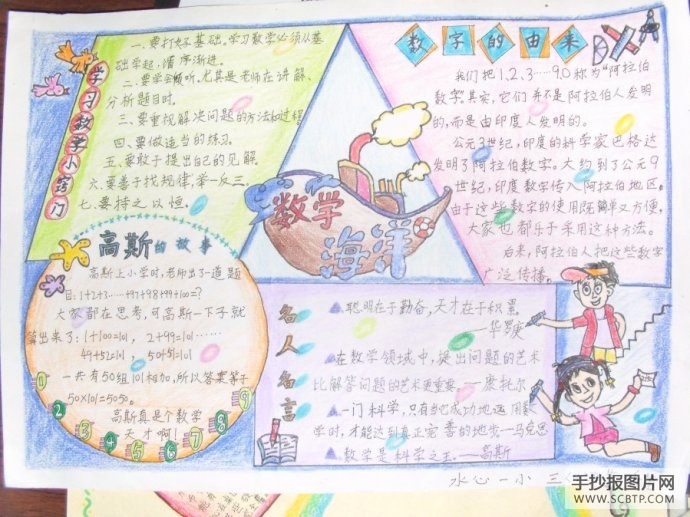 学习数学小窍门
一、要打好基础。学习数学必须从基
础学起，循序渐进。
二、要学会倾听。尤其是老师在讲解、
分析题目时。
三、要重视解决问题的方法和过程
四、要做适当的练习。
五、要敢于提出自己的见解。
六、要善于找规律，举一反三。
七、要持之以恒。
数学
海洋
数字的由来
我们把1、2、3……9、0称为"阿拉伯
数字"其实，它们并不是阿拉伯人发明
的，而是由印度人发明的。
公元3世纪，印度的科学家巴格达
发明了阿拉伯数字。大约到了公元9
世纪，印度数字传入阿拉伯地区。
由于这些数字的使用既简单又方便，
大家也都乐于采用这种方法。
后来，阿拉伯人把这些数字
广泛传播。
高斯的故事
高斯上小学时，老师出了一道题
目：1+2+3……+97+98+99+100=？
大家都在思考，可高斯一下子就
算出来了：1+100=101，2+99=101……
49+52=101，50+51=101
一共有50组101相加，所以答案等于
50×101=5050。
高斯真是个数学
天才啊！
1
2
3
4
5
6
7
8
9
名人名言
聪明在于勤奋，天才在于积累。
——华罗庚
在数学领域中，提出问题的艺术
比解答问题的艺术更重要。——康托尔
一门科学，只有当它成功地运用数
学时，才能达到真正完善的地步。—马克思
数学是科学之王。——高斯
水心一小 三
手抄报图片网
WWW.SCBTP.COM